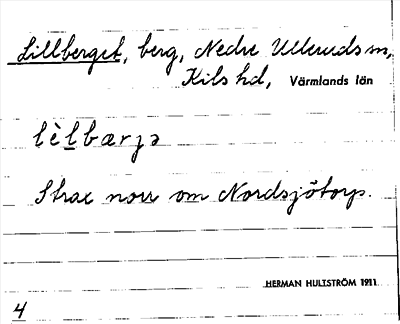 Lillberget, berg, Nedre Ulleruds sn,
Kils hd, Värmlands län
lèlbærjə
Strax norr om Nordsjötorp.
HERMAN HULTSTRÖM 1911
4